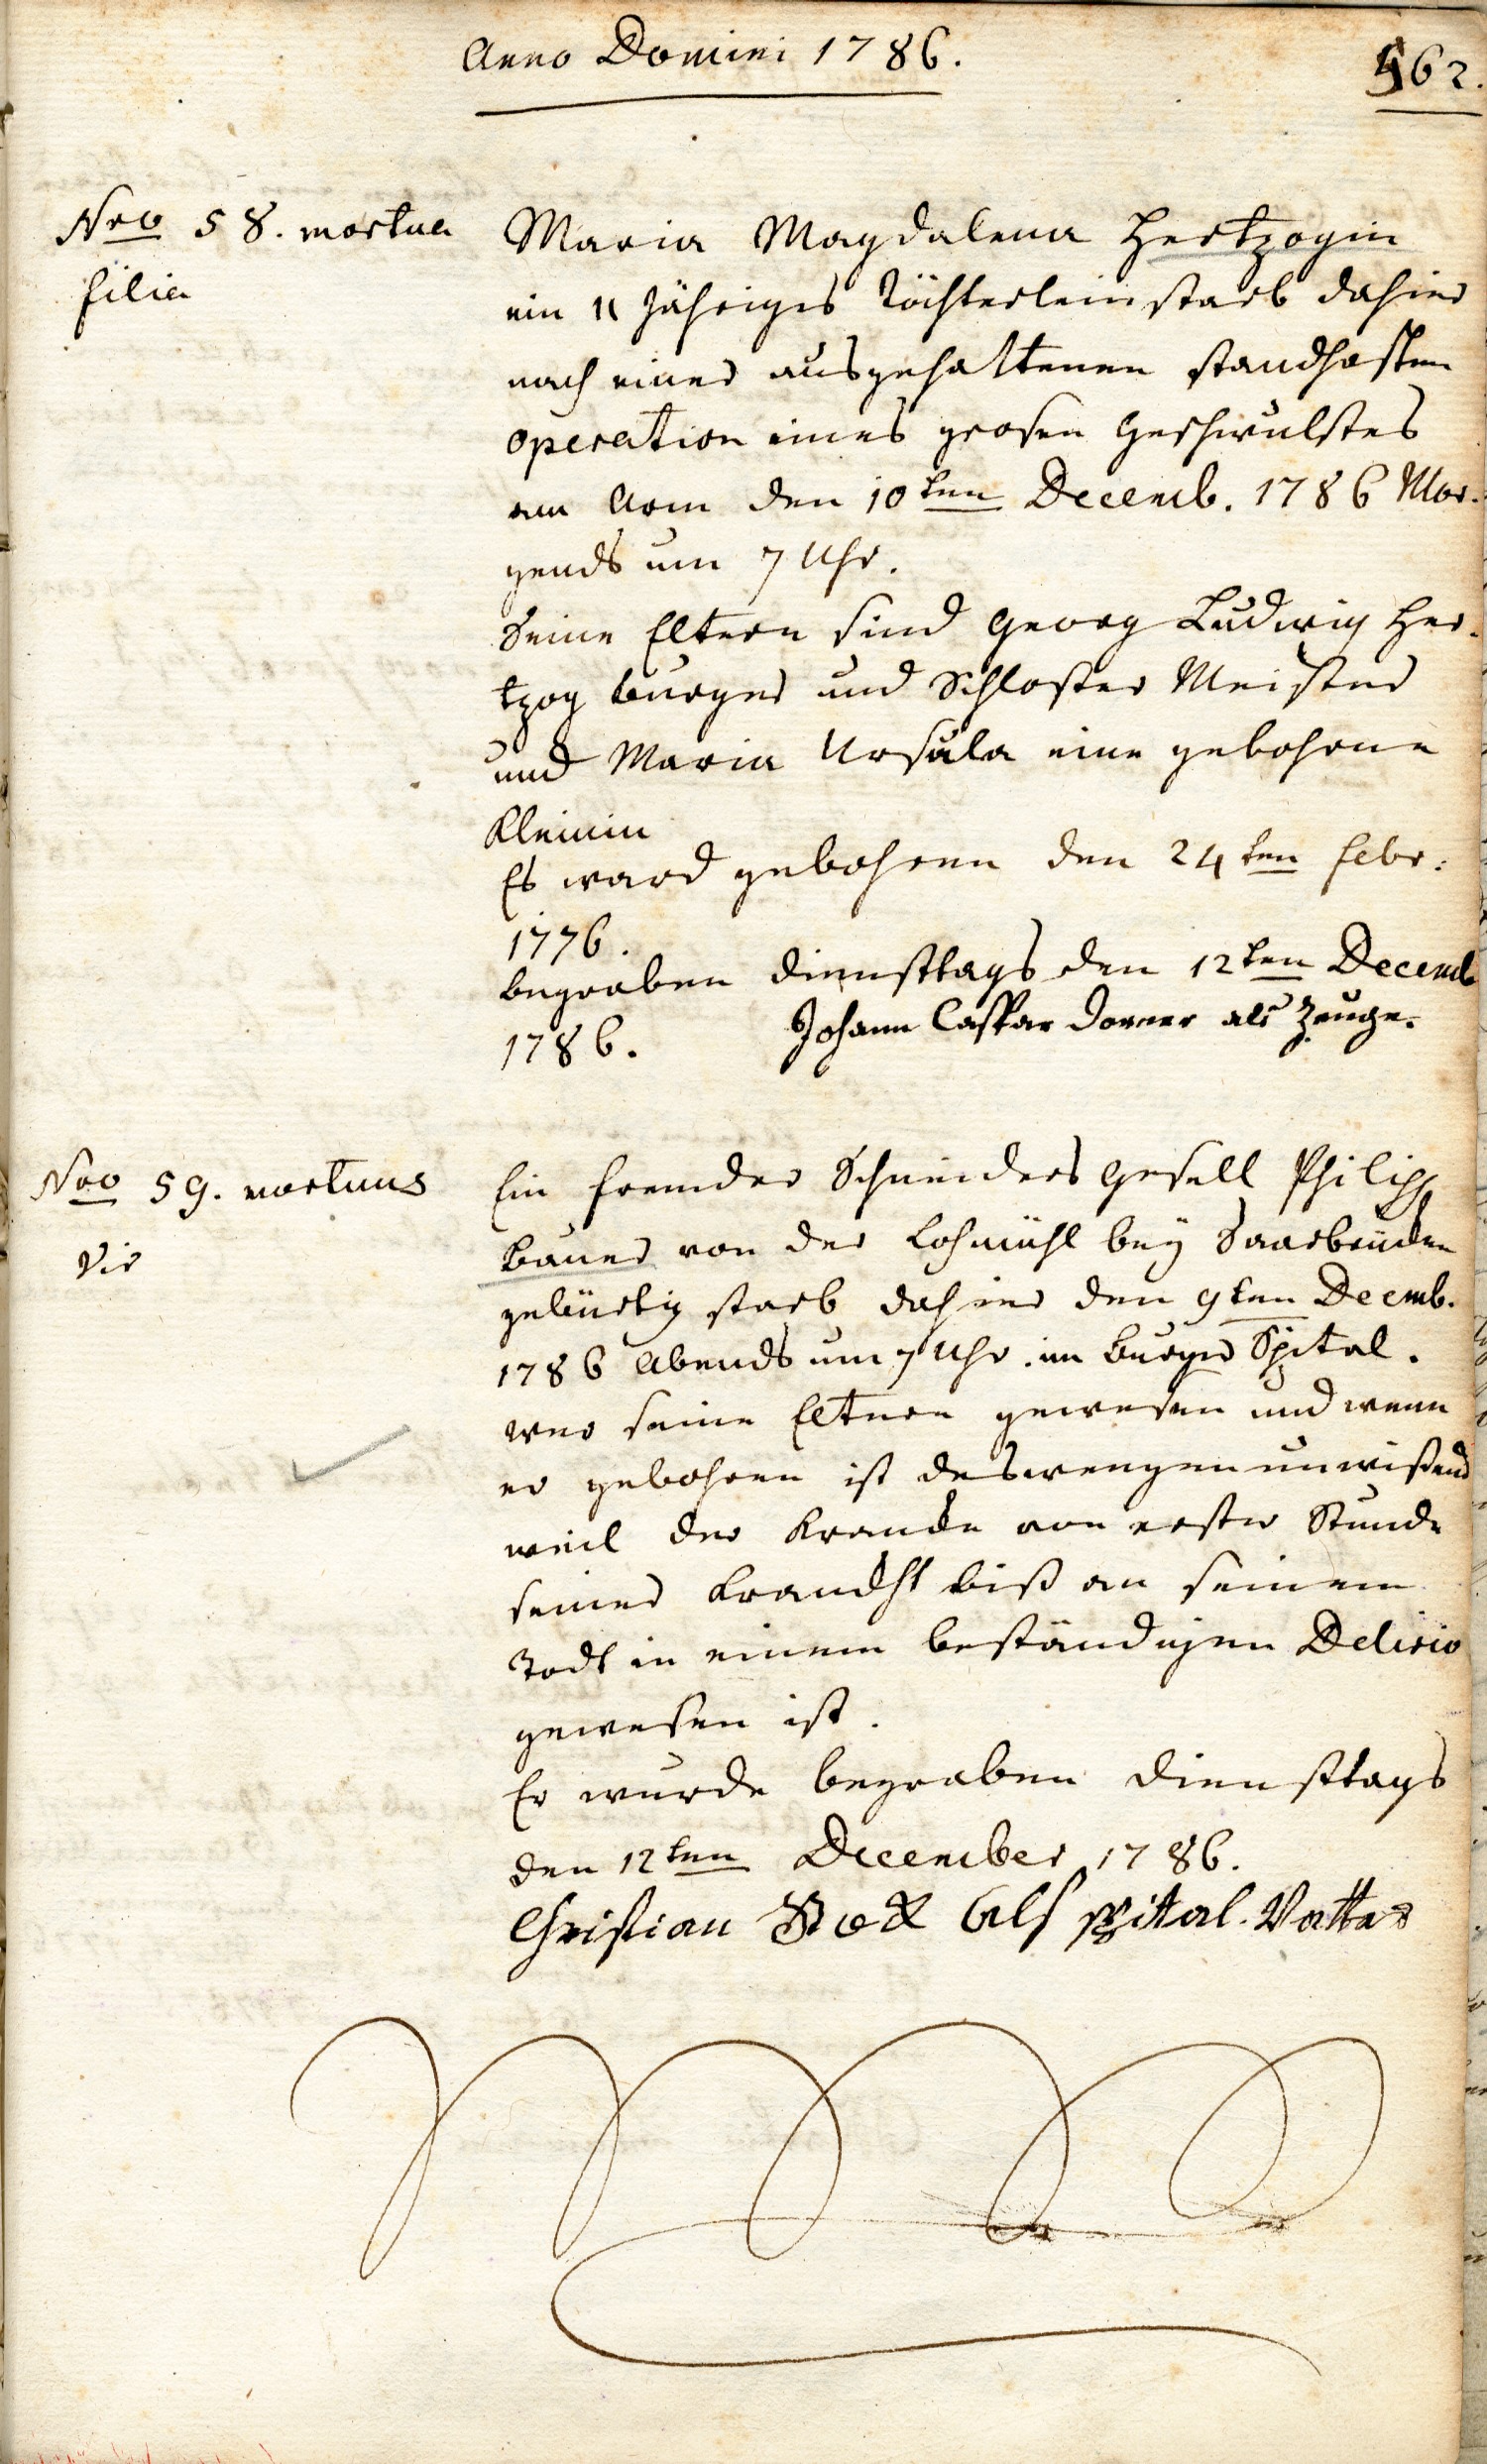 Anno Domini 1786.
562.
Nro 58. mortua
filia
Maria Magdalena Hertzogin
ein 11 Jähriges Töchterlein starb dahier
nach einer ausgehaltenen standhaften
operation eines grosen Geschwulstes
am Arm den 10ten Decemb. 1786 Mor-
gends um 7 Uhr.
Seine Eltern sind Georg Ludwig Her-
tzog burger und Schlosser Meister
und Maria Ursula eine gebohrne
Kleinin
Es ward gebohren den 24ten Febr:
1776.
begraben Diensttags den 12ten Decemb
1786.
Johann Caspar Dorner als Zeuge.
Nro 59. mortuus
Vir
Ein fremder Schneiders Gesell Philipp
Bauer von der Lohmühl bey Saarbrücken
gebürtig starb dahier den 9ten Decmb.
1786 Abends um 7 Uhr im burger Spital.
wer seine Eltern gewesen und wenn
er gebohren ist deswengen unwißend
weil der Krancke von erster Stunde
seiner Kranckht biß an seinem
Todt in einem beständigen Delirio
gewesen ist.
Er wurde begraben Diensttags
den 12ten December 1786.
Christian als spital. Vatter